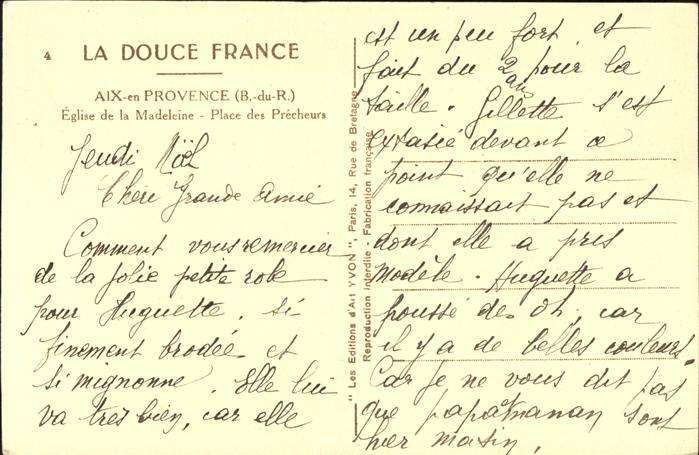 4 LA DOUCE FRANCE
AIX-en PROVENCE (B.-du-R.)
Église de la Madeleine - Place des Prêcheurs
Jeudi Nöel
Chère Grande Amie
Comment vous remercier
de la jolie petite robe
pour Huguette. Si
finement brodée et
si mignonne. Elle lui
va très bien, car elle
"Les Editions d'Art YVON", Paris, 14, Rue de Bretagne
Reproduction interdite Fabrication française
est un peu fort et
fait du 2 ans pour la
taille. Gillette s'est
extasié devant ce
point qu'elle ne
connaissait pas et
dont elle a pris
modèle. Huguette a
poussé des Oh, car
il y a de belles couleurs.
Car je ne vous dit pas
que papa maman sont
hier matin.